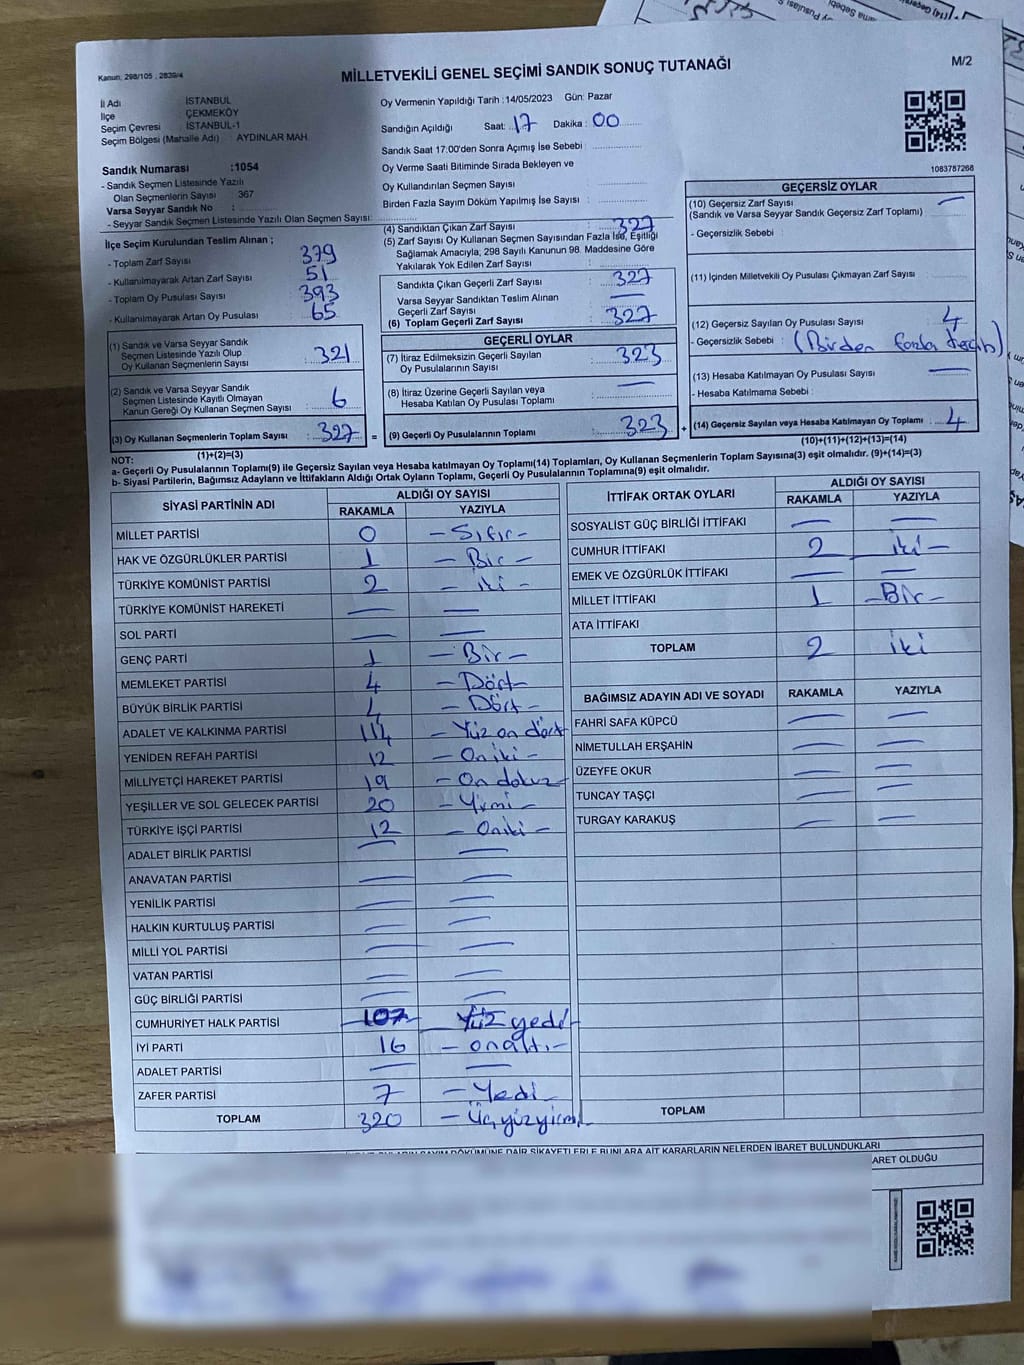 Kanun: 298/105 , 2839/4
MİLLETVEKİLİ GENEL SEÇİMİ SANDIK SONUÇ TUTANAĞI
M/2
İl Adı İSTANBUL
İlçe ÇEKMEKÖY
Seçim Çevresi İSTANBUL-1
Seçim Bölgesi (Mahalle Adı) AYDINLAR MAH.
Sandık Numarası :1054
- Sandık Seçmen Listesinde Yazılı
Olan Seçmenlerin Sayısı : 367
Varsa Seyyar Sandık No :
- Seyyar Sandık Seçmen Listesinde Yazılı Olan Seçmen Sayısı:
İlçe Seçim Kurulundan Teslim Alınan ;
- Toplam Zarf Sayısı : 379
- Kullanılmayarak Artan Zarf Sayısı : 51
- Toplam Oy Pusulası Sayısı : 393
- Kullanılmayarak Artan Oy Pusulası : 65
(1) Sandık ve Varsa Seyyar Sandık
Seçmen Listesinde Yazılı Olup
Oy Kullanan Seçmenlerin Sayısı : 321
(2) Sandık ve Varsa Seyyar Sandık
Seçmen Listesinde Kayıtlı Olmayan
Kanun Gereği Oy Kullanan Seçmen Sayısı : 6
(3) Oy Kullanan Seçmenlerin Toplam Sayısı : 327 =
(1)+(2)=(3)
Oy Vermenin Yapıldığı Tarih :14/05/2023 Gün: Pazar
Sandığın Açıldığı Saat: 17 Dakika : 00
Sandık Saat 17:00'den Sonra Açımış İse Sebebi :
Oy Verme Saati Bitiminde Sırada Bekleyen ve
Oy Kullandırılan Seçmen Sayısı :
Birden Fazla Sayım Döküm Yapılmış İse Sayısı :
(4) Sandıktan Çıkan Zarf Sayısı : 327
(5) Zarf Sayısı Oy Kullanan Seçmen Sayısından Fazla İse, Eşitliği
Sağlamak Amacıyla, 298 Sayılı Kanunun 98. Maddesine Göre
Yakılarak Yok Edilen Zarf Sayısı :
Sandıkta Çıkan Geçerli Zarf Sayısı : 327
Varsa Seyyar Sandıktan Teslim Alınan
Geçerli Zarf Sayısı : —
(6) Toplam Geçerli Zarf Sayısı : 327
GEÇERLİ OYLAR
(7) İtiraz Edilmeksizin Geçerli Sayılan
Oy Pusulalarının Sayısı : 323
(8) İtiraz Üzerine Geçerli Sayılan veya
Hesaba Katılan Oy Pusulası Toplamı : —
(9) Geçerli Oy Pusulalarının Toplamı : 323 +
1083787268
GEÇERSİZ OYLAR
(10) Geçersiz Zarf Sayısı : —
(Sandık ve Varsa Seyyar Sandık Geçersiz Zarf Toplamı)
- Geçersizlik Sebebi :
(11) İçinden Milletvekili Oy Pusulası Çıkmayan Zarf Sayısı :
(12) Geçersiz Sayılan Oy Pusulası Sayısı : 4
- Geçersizlik Sebebi : (Birden fazla tercih)
(13) Hesaba Katılmayan Oy Pusulası Sayısı : —
- Hesaba Katılmama Sebebi :
(14) Geçersiz Sayılan veya Hesaba Katılmayan Oy Toplamı : 4
(10)+(11)+(12)+(13)=(14)
NOT:
a- Geçerli Oy Pusulalarının Toplamı(9) ile Geçersiz Sayılan veya Hesaba katılmayan Oy Toplamı(14) Toplamları, Oy Kullanan Seçmenlerin Toplam Sayısına(3) eşit olmalıdır. (9)+(14)=(3)
b- Siyasi Partilerin, Bağımsız Adayların ve İttifakların Aldığı Ortak Oyların Toplamı, Geçerli Oy Pusulalarının Toplamına(9) eşit olmalıdır.
SİYASİ PARTİNİN ADI ALDIĞI OY SAYISI
RAKAMLA YAZIYLA
MİLLET PARTİSİ 0 - Sıfır -
HAK VE ÖZGÜRLÜKLER PARTİSİ 1 - Bir -
TÜRKİYE KOMÜNİST PARTİSİ 2 - iki -
TÜRKİYE KOMÜNİST HAREKETİ — —
SOL PARTİ — —
GENÇ PARTİ 1 - Bir -
MEMLEKET PARTİSİ 4 - Dört -
BÜYÜK BİRLİK PARTİSİ 4 - Dört -
ADALET VE KALKINMA PARTİSİ 114 - Yüz on dört
YENİDEN REFAH PARTİSİ 12 - Oniki -
MİLLİYETÇİ HAREKET PARTİSİ 19 - On dokuz
YEŞİLLER VE SOL GELECEK PARTİSİ 20 - Yirmi -
TÜRKİYE İŞÇİ PARTİSİ 12 - Oniki -
ADALET BİRLİK PARTİSİ — —
ANAVATAN PARTİSİ — —
YENİLİK PARTİSİ — —
HALKIN KURTULUŞ PARTİSİ — —
MİLLİ YOL PARTİSİ — —
VATAN PARTİSİ — —
GÜÇ BİRLİĞİ PARTİSİ — —
CUMHURİYET HALK PARTİSİ 107 Yüz yedi -
İYİ PARTİ 16 - onaltı -
ADALET PARTİSİ — —
ZAFER PARTİSİ 7 - Yedi -
TOPLAM 320 - Üçyüzyirmi
İTTİFAK ORTAK OYLARI ALDIĞI OY SAYISI
RAKAMLA YAZIYLA
SOSYALİST GÜÇ BİRLİĞİ İTTİFAKI — —
CUMHUR İTTİFAKI 2 iki -
EMEK VE ÖZGÜRLÜK İTTİFAKI — —
MİLLET İTTİFAKI 1 - Bir -
ATA İTTİFAKI
TOPLAM 2 iki
BAĞIMSIZ ADAYIN ADI VE SOYADI RAKAMLA YAZIYLA
FAHRİ SAFA KÜPCÜ — —
NİMETULLAH ERŞAHİN — —
ÜZEYFE OKUR — —
TUNCAY TAŞÇI — —
TURGAY KARAKUŞ — —
TOPLAM
DÖKÜMÜNE DAİR ŞİKAYETLERLE BUNLARA AİT KARARLARIN NELERDEN İBARET BULUNDUKLARI
ARET OLDUĞU